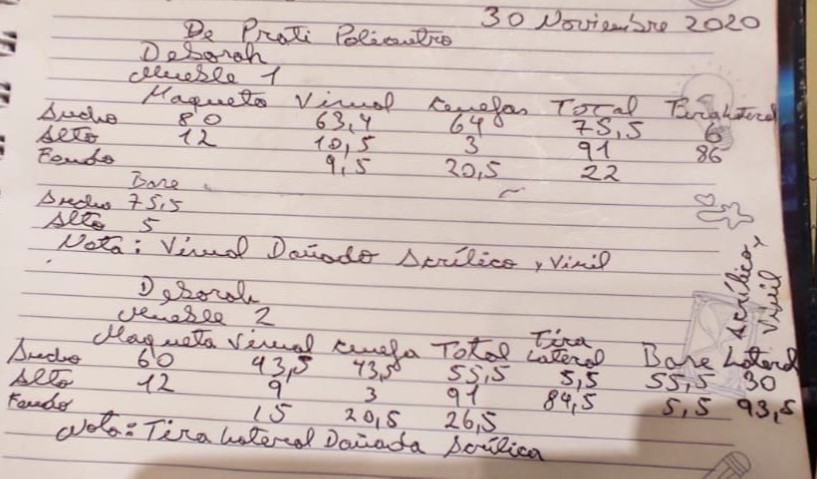 30 Noviembre 2020
De Prati Policentro
Deborah
Mueble 1
Maqueta Visual Cenefas Total Tira Lateral
Ancho 80 63,4 64 75,5 6
Alto 12 10,5 3 91 86
Fondo 9,5 20,5 22
Base
Ancho 75,5
Alto 5
Nota: Visual Dañado Acrílico y Vinil
Deborah
Mueble 2
Maqueta Visual Cenefa Total Tira Lateral Base Lateral Acrílico y Vinil
Ancho 60 43,5 43,5 55,5 5,5 55,5 30
Alto 12 9 3 91 84,5 5,5 93,5
Fondo 15 20,5 26,5
Nota: Tira Lateral Dañada Acrílica